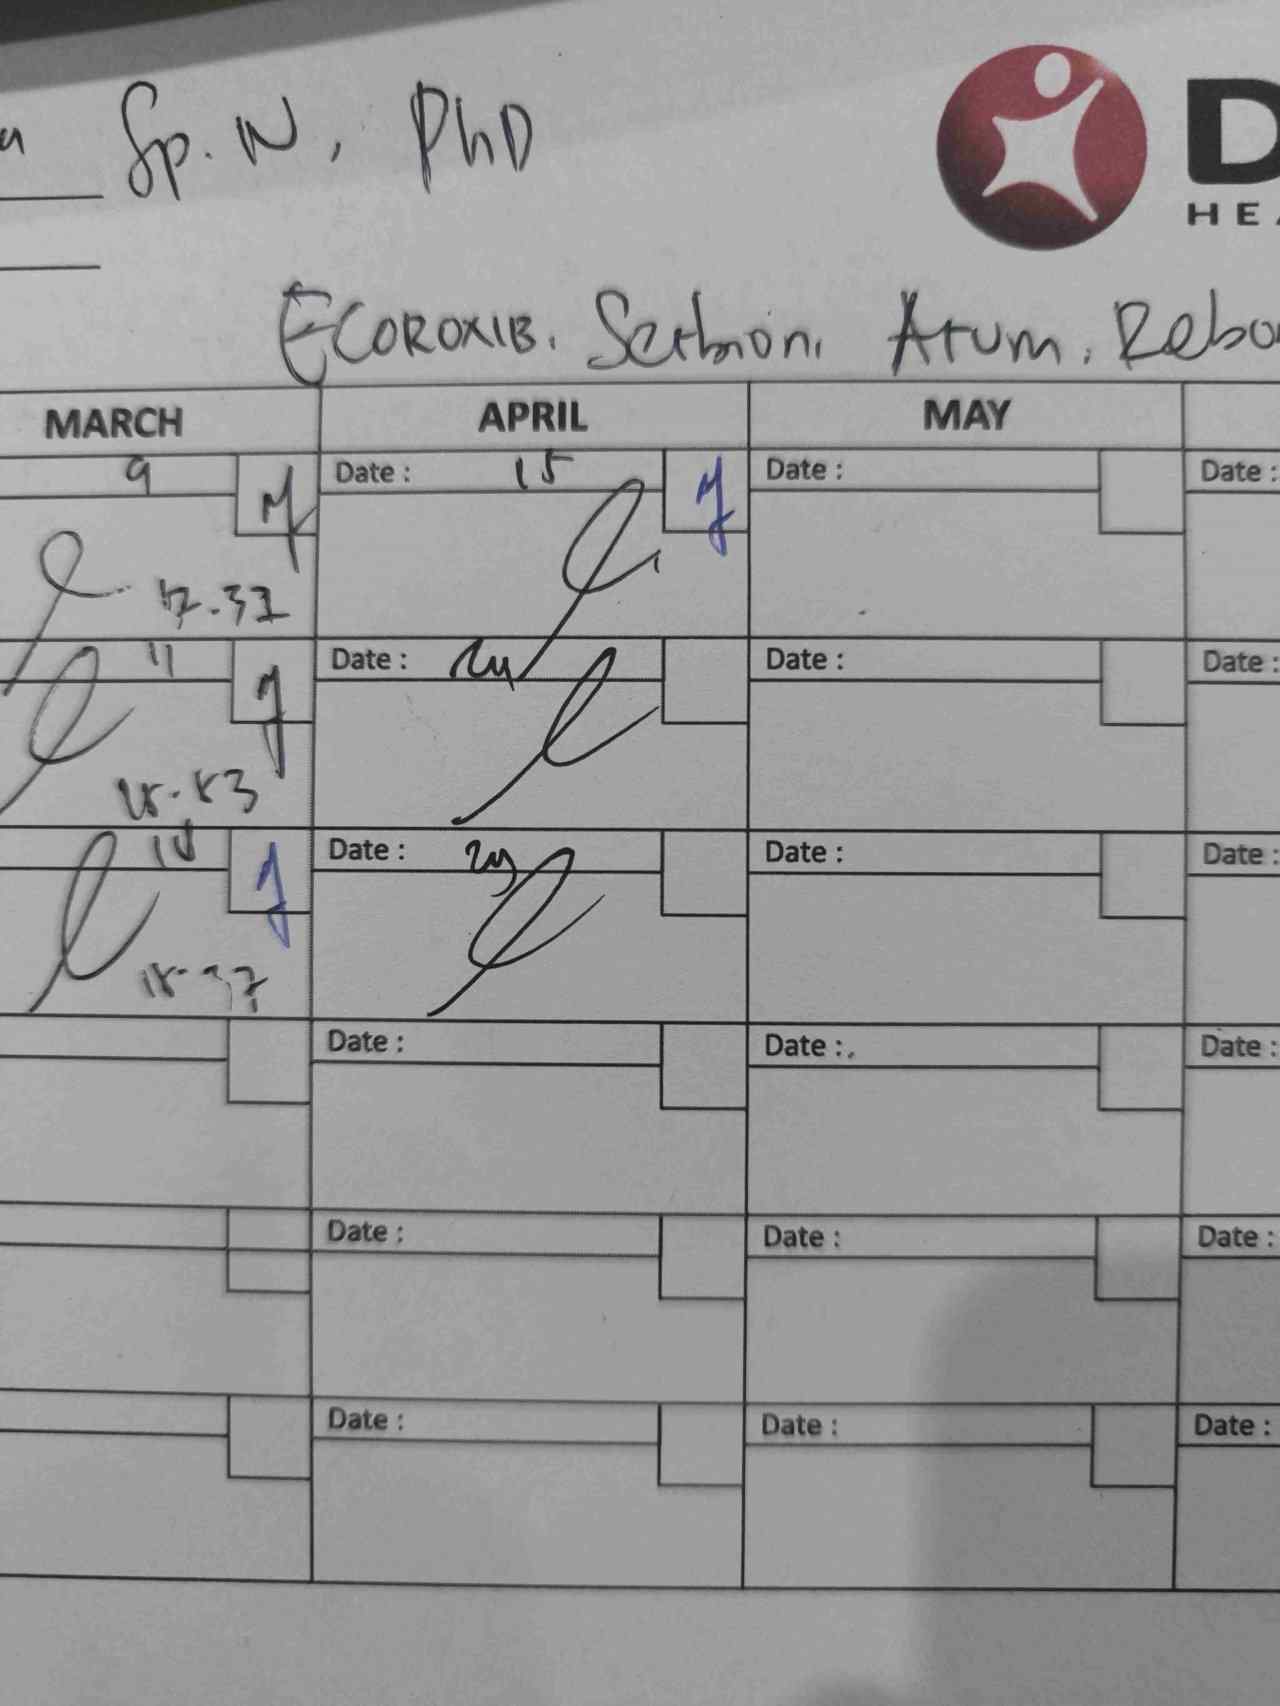 Sp. N, PhD
D
HEA
ECOROXIB. Scetbion. Atum. Rebo
MARCH APRIL MAY
9 Date : 15 Date : Date :
17.37
11 Date : 24 Date : Date :
18.53
18 Date : 29 Date : Date :
18.37
Date : Date : Date :
Date : Date : Date :
Date : Date : Date :